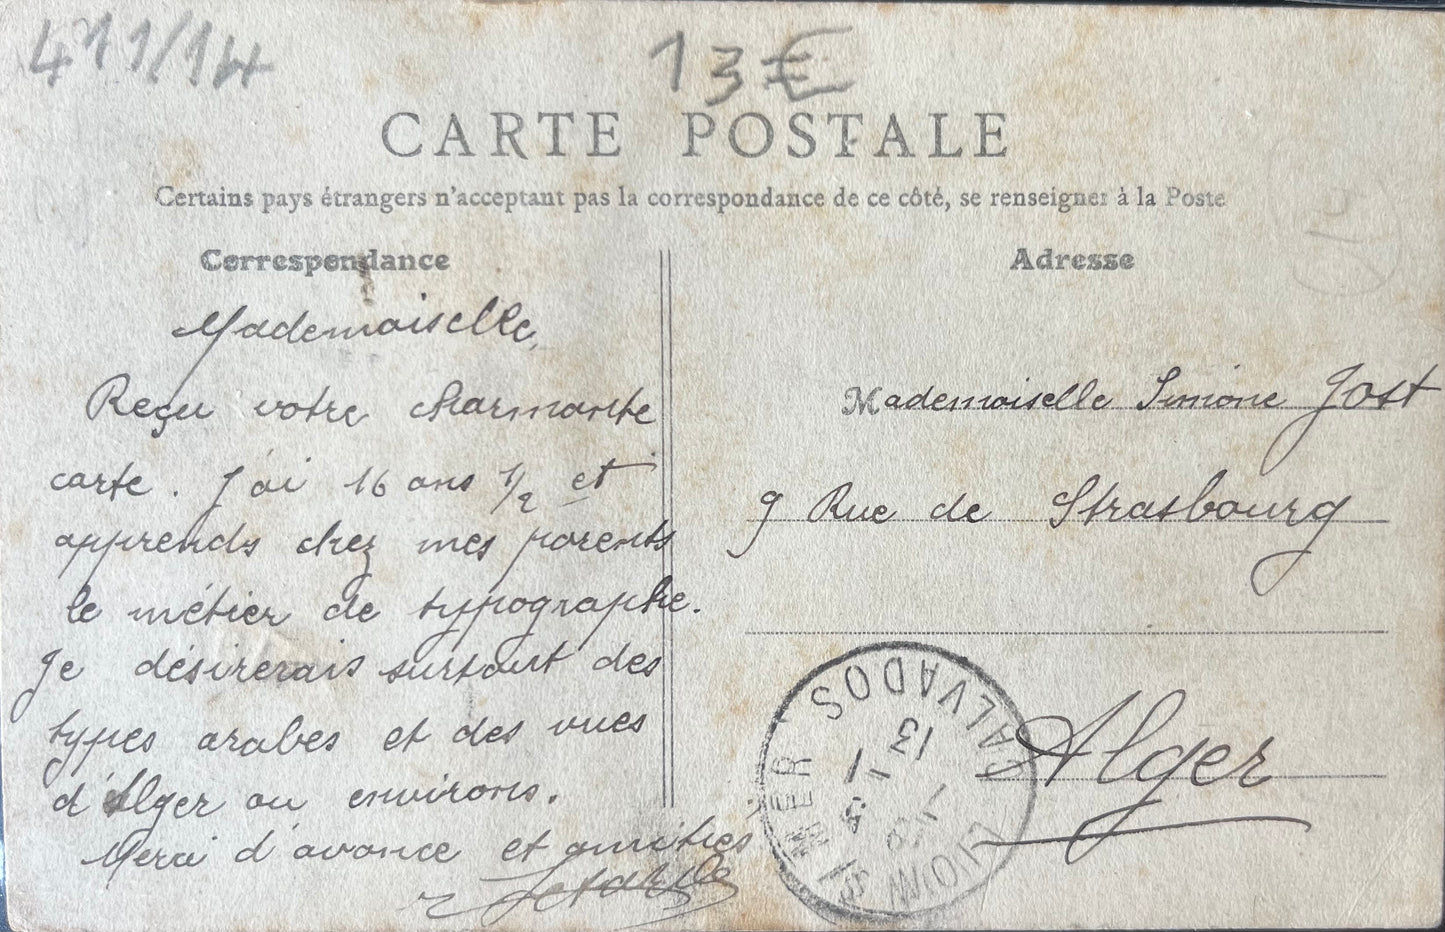 411/14
13€
CARTE POSTALE
Certains pays étrangers n'acceptant pas la correspondance de ce côté, se renseigner à la Poste
Correspondance
Mademoiselle,
Reçu votre charmante
carte. J'ai 16 ans 1/2 et
apprends chez mes parents
le métier de typographe.
Je désirerais surtout des
types arabes et des vues
d'Alger ou environs.
Merci d'avance et amitiés
Adresse
Mademoiselle Simone Jost
9 Rue de Strasbourg
Alger
LION S/ MER CALVADOS
13